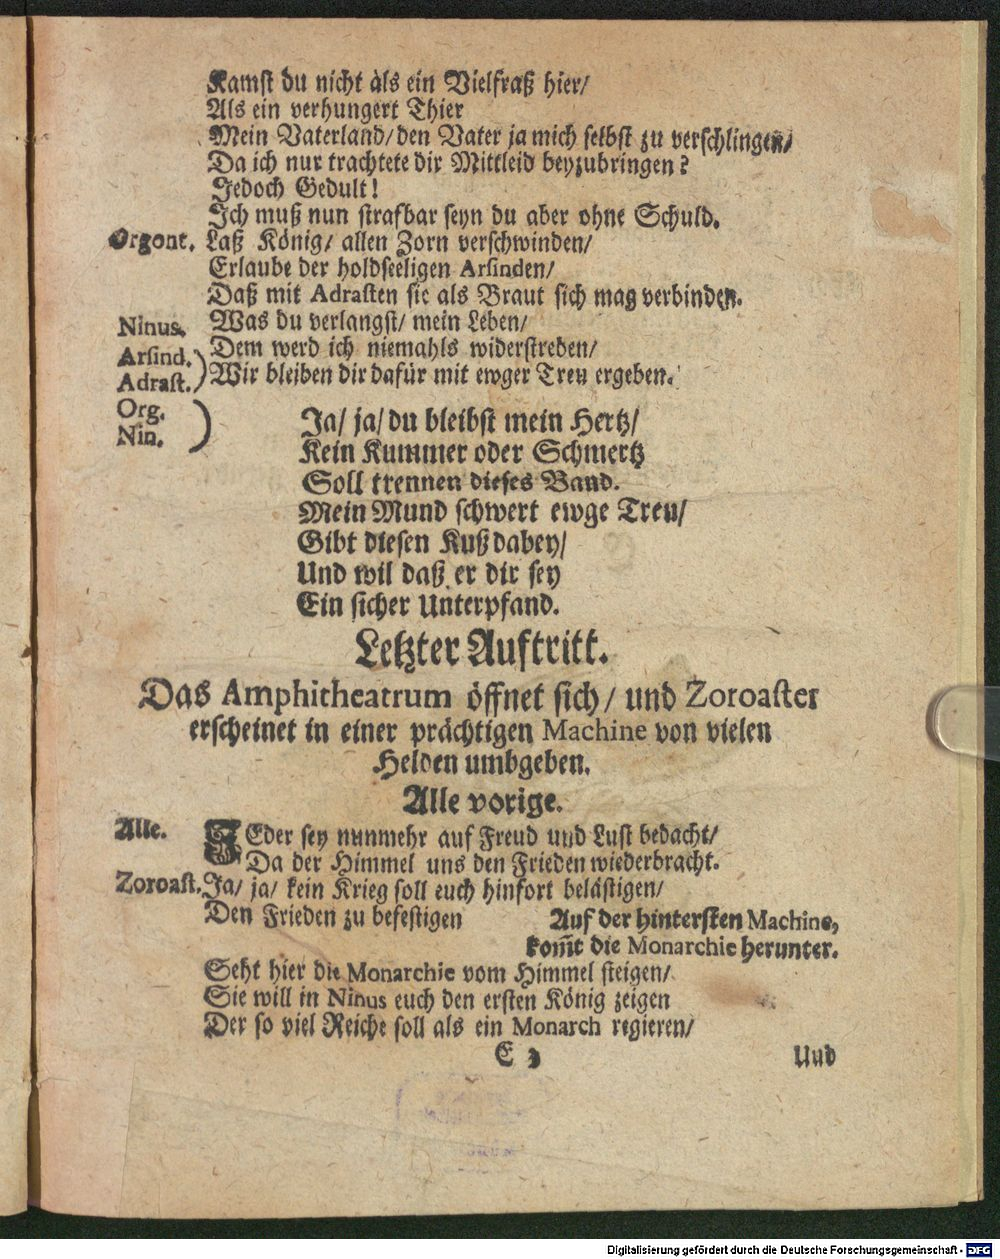 Kamst du nicht als ein Vielfraß hier/
Als ein verhungert Thier
Mein Vaterland/ den Vater ja mich selbst zu verschlingen/
Da ich nur trachtete dir Mittleid beyzubringen?
Jedoch Gedult!
Ich muß nun strafbar seyn du aber ohne Schuld.
Orgont. Laß König/ allen Zorn verschwinden/
Erlaube der holdseeligen Arsinden/
Daß mit Adrasten sie als Braut sich mag verbinden.
Ninus. Was du verlangst/ mein Leben/
Arsind. Dem werd ich niemahls widerstreben/
Adrast.) Wir bleiben dir dafür mit ewger Treu ergeben.
Org.
Nin. ) Ja/ ja/ du bleibst mein Hertz/
Kein Kummer oder Schmertz
Soll trennen dieses Band.
Mein Mund schwert ewge Treu/
Gibt diesen Kuß dabey/
Und wil daß er dir sey
Ein sicher Unterpfand.
Letzter Auftritt.
Das Amphitheatrum öffnet sich/ und Zoroaster
erscheinet in einer prächtigen Machine von vielen
Helden umbgeben.
Alle vorige.
Alle. JEder sey nunmehr auf Freud und Lust bedacht/
Da der Himmel uns den Frieden wiederbracht.
Zoroast. Ja/ ja/ kein Krieg soll euch hinfort belästigen/
Den Frieden zu befestigen Auf der hintersten Machine,
kom̃t die Monarchie herunter.
Seht hier die Monarchie vom Himmel steigen/
Sie will in Ninus euch den ersten König zeigen
Der so viel Reiche soll als ein Monarch regieren/
E 3 Und
Digitalisierung gefördert durch die Deutsche Forschungsgemeinschaft - DFG